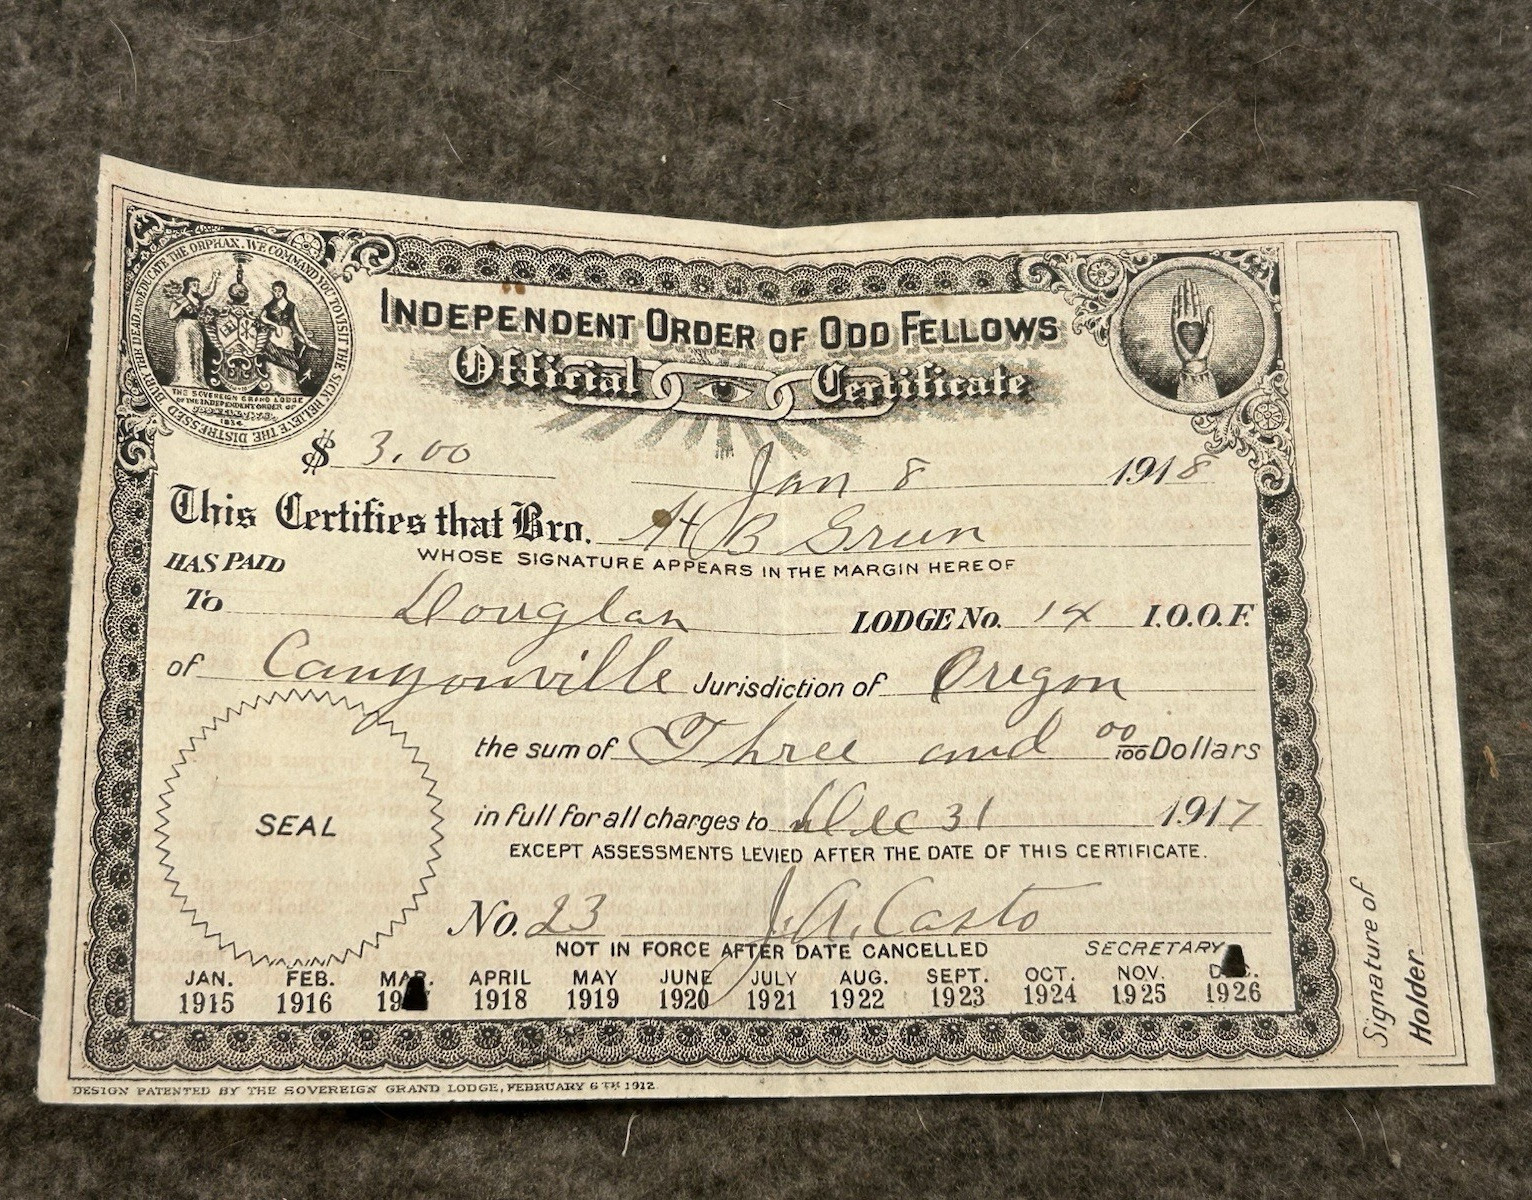 WE COMMAND YOU TO VISIT THE SICK RELIEVE THE DISTRESSED BURY THE DEAD AND EDUCATE THE ORPHAN.
THE SOVEREIGN GRAND LODGE
OF THE INDEPENDENT ORDER OF
INDEPENDENT ORDER OF ODD FELLOWS
Official Certificate
$ 3.00
Jan 8 1918
This Certifies that Bro. H B Grun
WHOSE SIGNATURE APPEARS IN THE MARGIN HEREOF
HAS PAID
To Douglas LODGE No. 14 I.O.O.F.
of Canyonville Jurisdiction of Oregon
the sum of Three and 00/100 Dollars
SEAL
in full for all charges to Dec 31 1917
EXCEPT ASSESSMENTS LEVIED AFTER THE DATE OF THIS CERTIFICATE.
No. 23 J. A. Casto
NOT IN FORCE AFTER DATE CANCELLED SECRETARY
JAN. FEB. MAR. APRIL MAY JUNE JULY AUG. SEPT. OCT. NOV. DEC.
1915 1916 1917 1918 1919 1920 1921 1922 1923 1924 1925 1926
DESIGN PATENTED BY THE SOVEREIGN GRAND LODGE, FEBRUARY 6TH 1912
Signature of
Holder